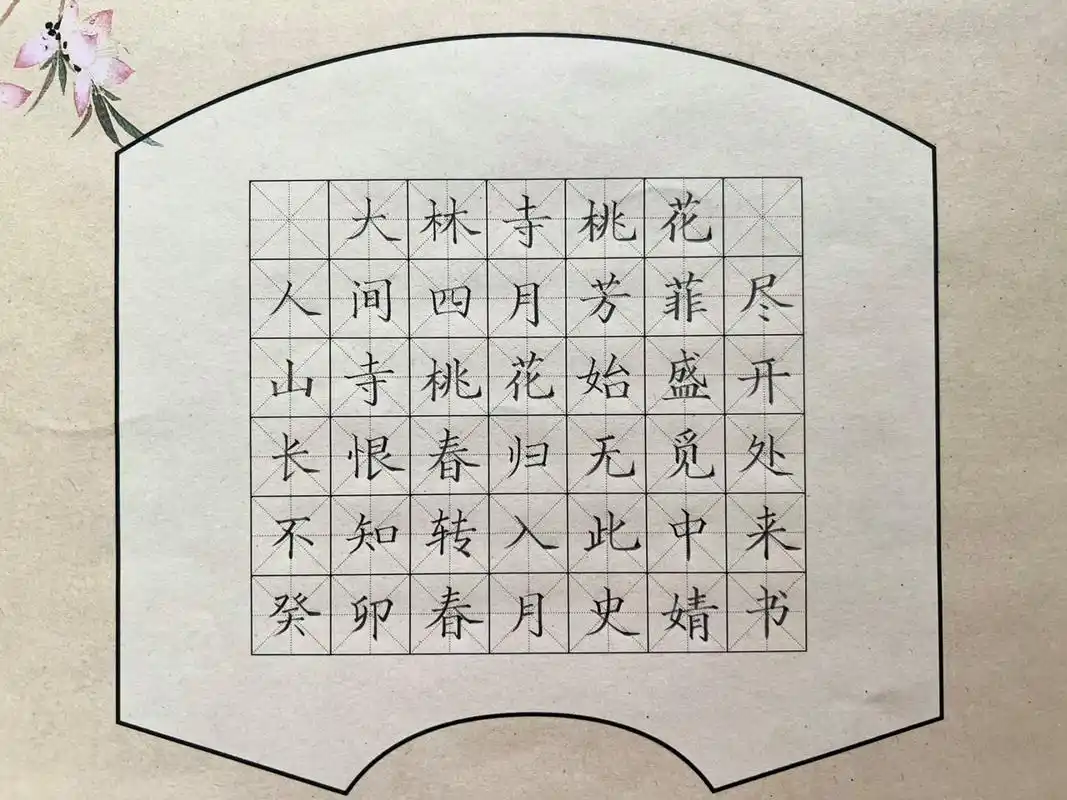 大林寺桃花
人间四月芳菲尽
山寺桃花始盛开
长恨春归无觅处
不知转入此中来
癸卯春月史婧书